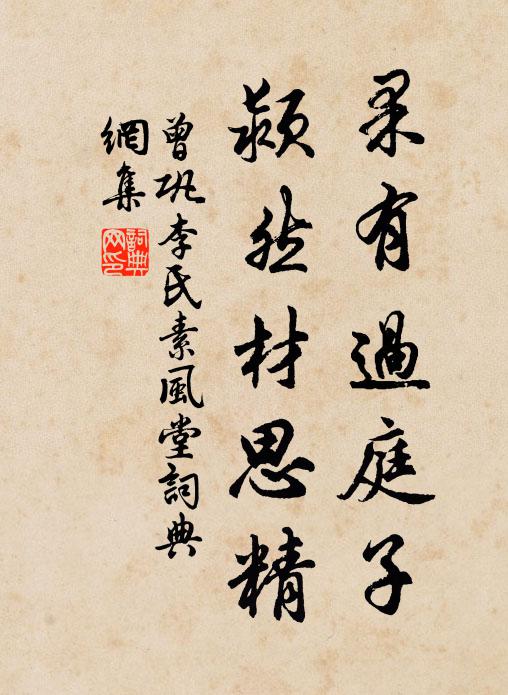 果有過庭子
颍然材思精
曾巩李氏素風堂詞典
網集
詞典网印